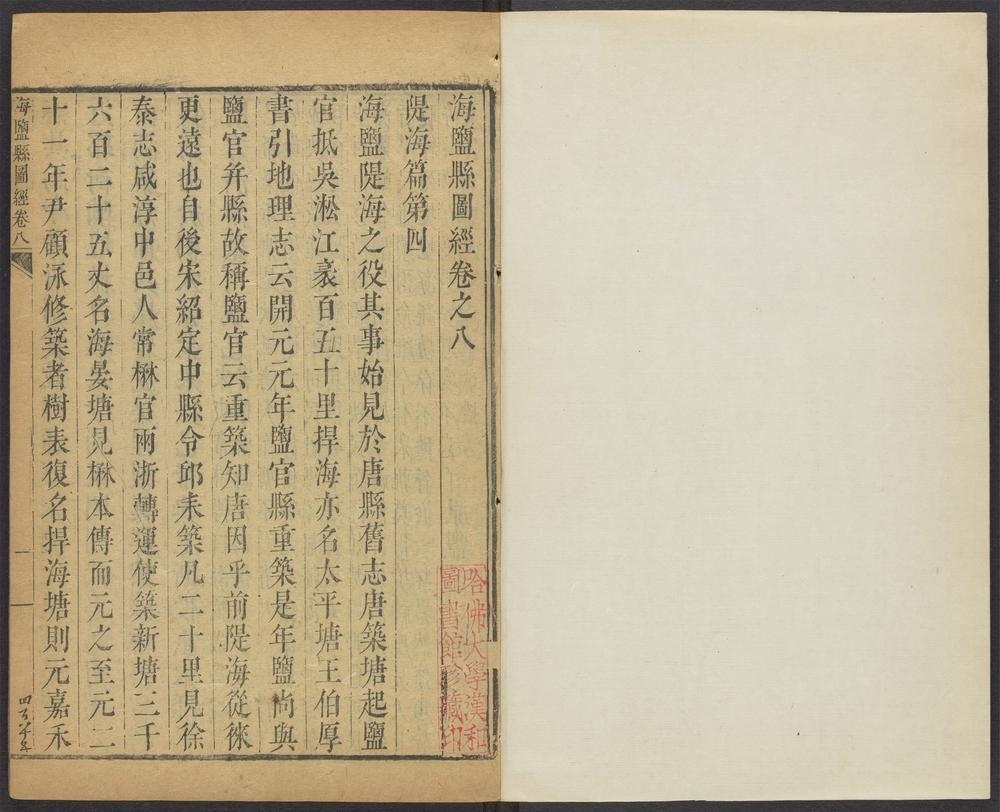 海鹽縣圖經卷之八
隄海篇第四
海鹽隄海之役其事始見於唐縣舊志唐築塘起鹽
官抵吳淞江袤百五十里捍海亦名太平塘王伯厚
書引地理志云開元元年鹽官縣重築是年鹽尚與
鹽官幷縣故稱鹽官云重築知唐因乎前隄海從徠
更遠也自後宋紹定中縣令邱耒築凡二十里見徐
泰志咸淳中邑人常楙官兩浙轉運使築新塘三千
六百二十五丈名海晏塘見楙本傳而元之至元二
十一年尹顧泳修築者樹表復名捍海塘則元嘉禾
海鹽縣圖經卷八
一
哈佛大學漢和
圖書館珍藏印